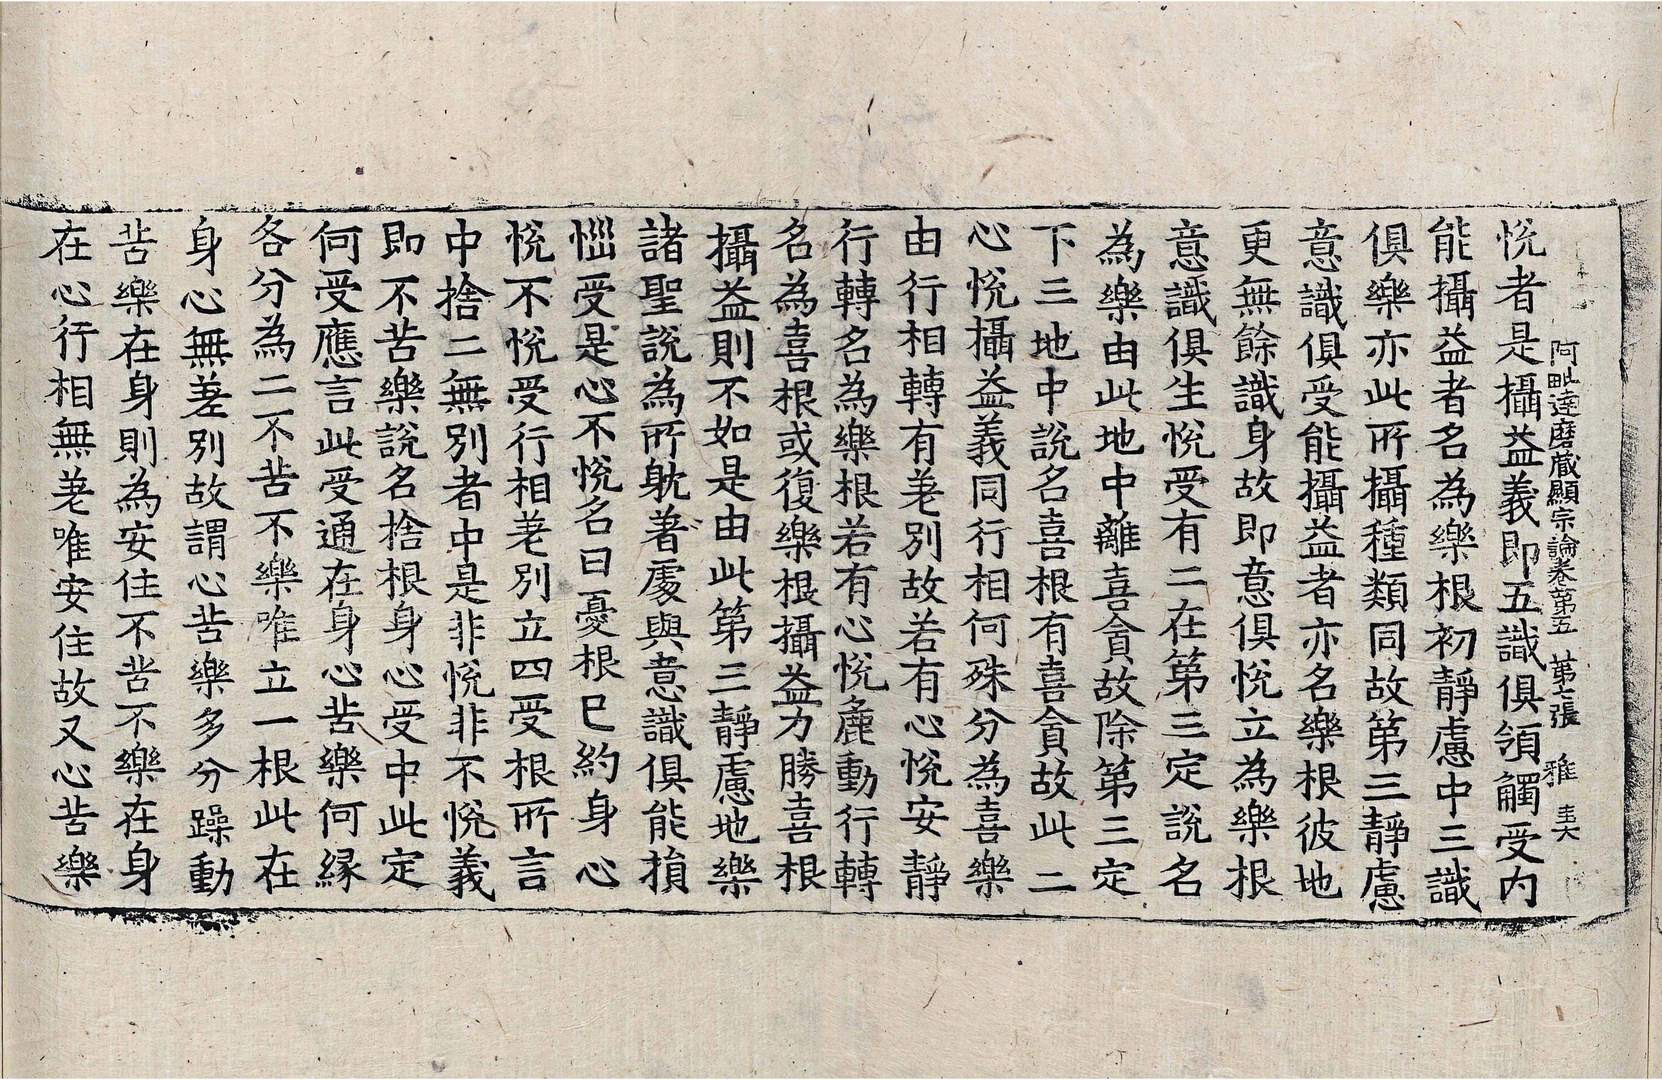 阿毗達磨藏顯宗論卷第五　第七張　雅
悅者是攝益義即五識俱領觸受內
能攝益者名為樂根初靜慮中三識
俱樂亦此所攝種類同故第三靜慮
意識俱受能攝益者亦名樂根彼地
更無餘識身故即意俱悅立為樂根
意識俱生悅受有二在第三定說名
為樂由此地中離喜貪故除第三定
下三地中說名喜根有喜貪故此二
心悅攝益義同行相何殊分為喜樂
由行相轉有差別故若有心悅安靜
行轉名為樂根若有心悅麁動行轉
名為喜根或復樂根攝益力勝喜根
攝益則不如是由此第三靜慮地樂
諸聖說為所躭著處與意識俱能損
惱受是心不悅名曰憂根已約身心
悅不悅受行相差別立四受根所言
中捨二無別者中是非悅非不悅義
即不苦樂說名捨根身心受中此定
何受應言此受通在身心苦樂何緣
各分為二不苦不樂唯立一根此在
身心無差別故謂心苦樂多分躁動
苦樂在身則為安住不苦不樂在身
在心行相無差唯安住故又心苦樂